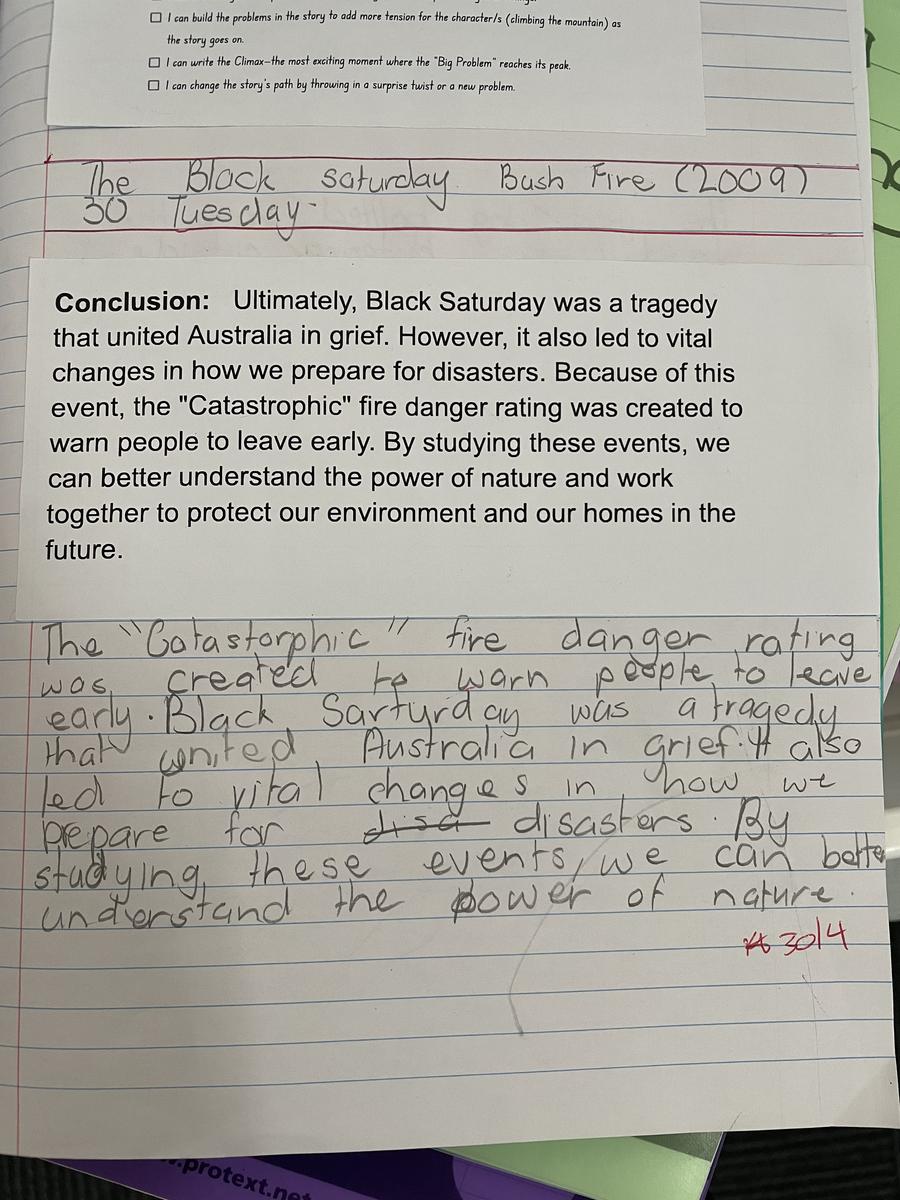 ☐ I can build the problems in the story to add more tension for the character/s (climbing the mountain) as
the story goes on.
☐ I can write the Climax–the most exciting moment where the "Big Problem" reaches its peak.
☐ I can change the story's path by throwing in a surprise twist or a new problem.
The Black saturday Bush Fire (2009)
30 Tuesday
Conclusion: Ultimately, Black Saturday was a tragedy
that united Australia in grief. However, it also led to vital
changes in how we prepare for disasters. Because of this
event, the "Catastrophic" fire danger rating was created to
warn people to leave early. By studying these events, we
can better understand the power of nature and work
together to protect our environment and our homes in the
future.
The "Catastorphic" fire danger rating
was created to warn people to leave
early. Black Sarturday was a tragedy
that united Australia in grief. It also
led to vital changes in how we
prepare for disa disasters. By
studying these events, we can better
understand the power of nature.
30/4
.protext.net